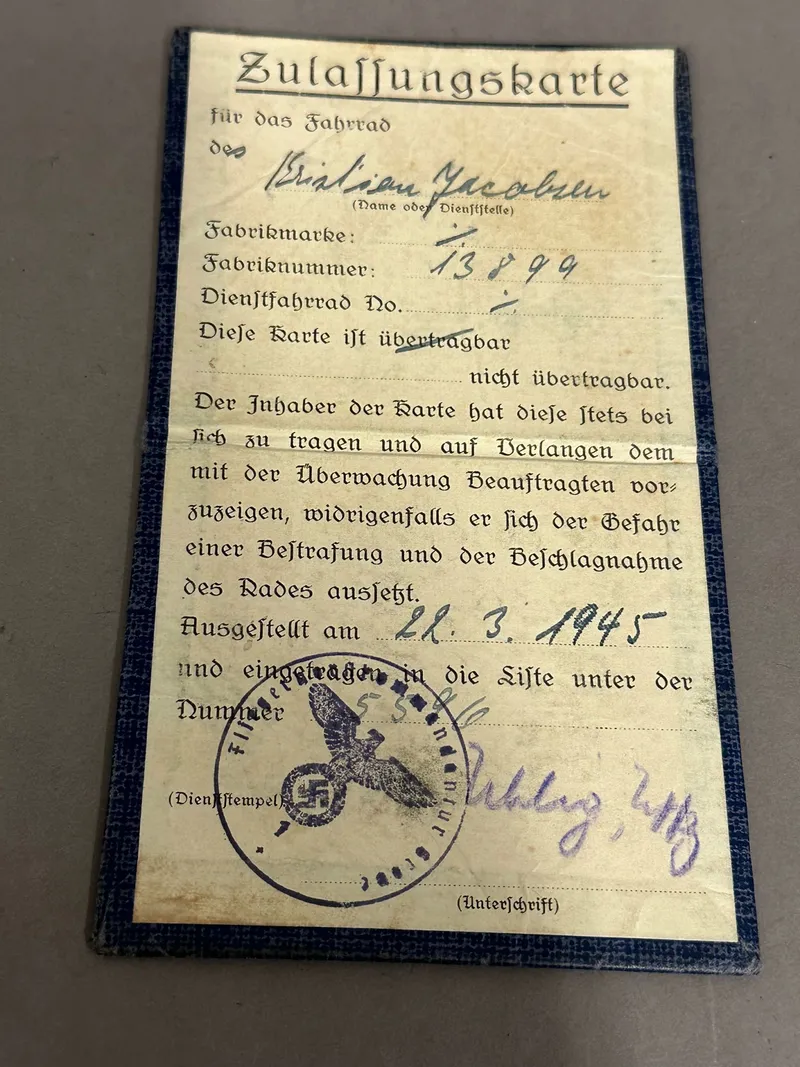 Zulassungskarte
für das Fahrrad
des
Kristian Jacobsen
(Name oder Dienststelle)
Fabrikmarke: ⁒
Fabriknummer: 13899
Dienstfahrrad No. ⁒
Diese Karte ist übertragbar
nicht übertragbar.
Der Inhaber der Karte hat diese stets bei
sich zu tragen und auf Verlangen dem
mit der Überwachung Beauftragten vor-
zuzeigen, widrigenfalls er sich der Gefahr
einer Bestrafung und der Beschlagnahme
des Rades aussetzt.
Ausgestellt am 22. 3. 1945
und eingetragen in die Liste unter der
Nummer
Fliegerhorstkommandantur Grove
(Dienststempel)
(Unterschrift)